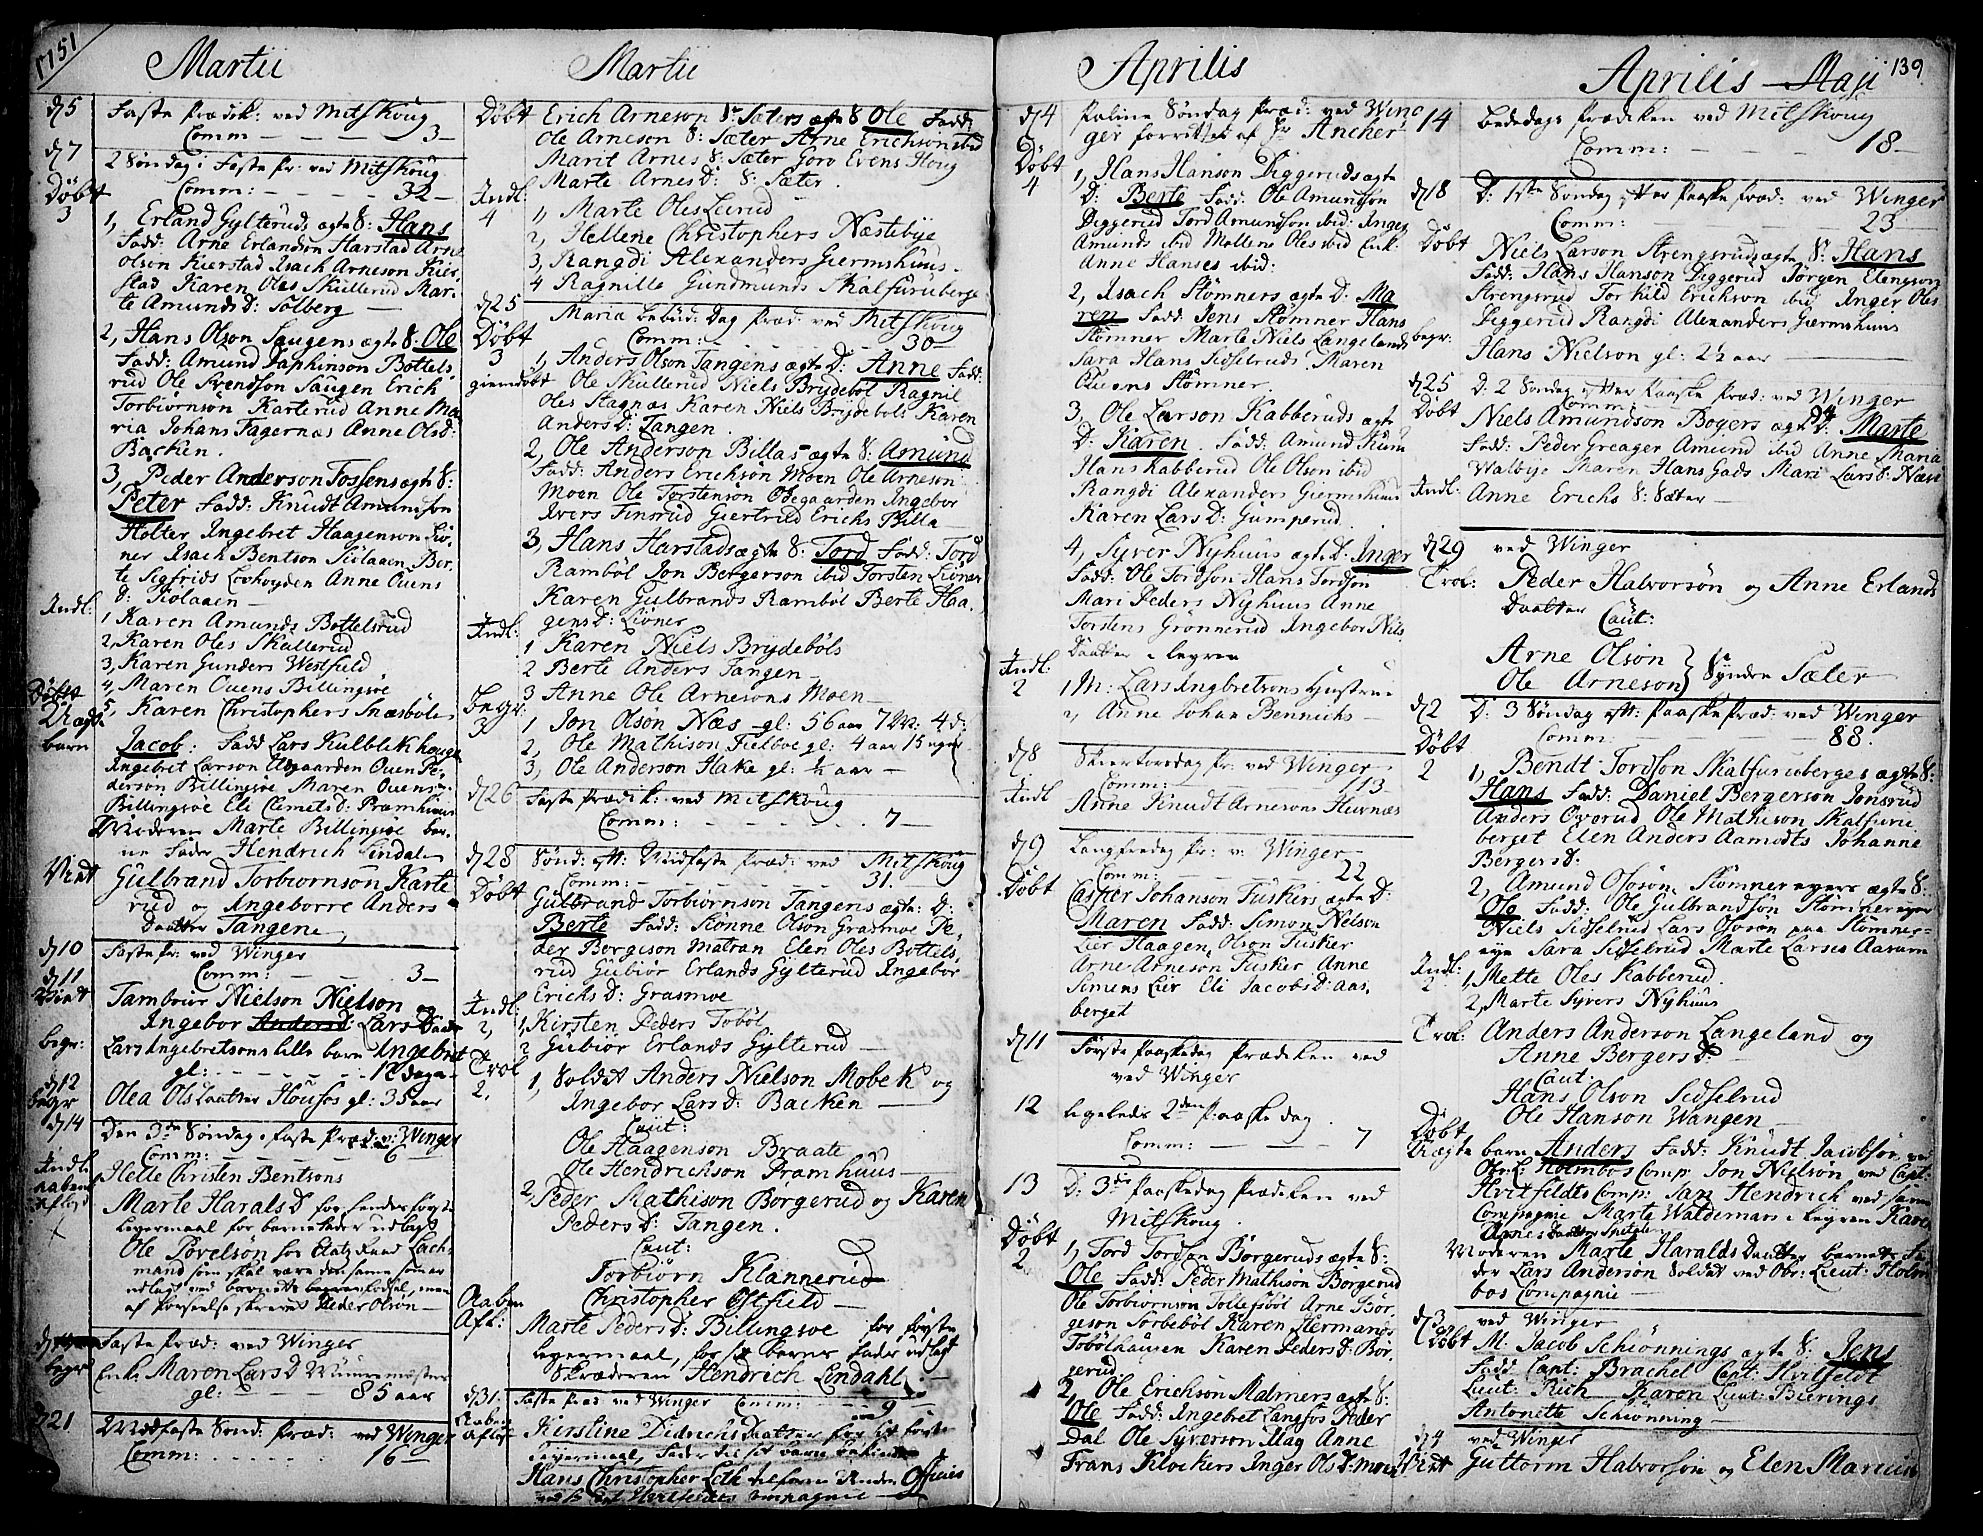 1751
Martii
d 5 Faste Prædik: ved Mitskoug
Comm - - - 3 -
d 7 2 Söndag i Faste Pr: ved Mitskoug
Comm: - - - 32 -
Döbt
3
1, Erland Gylteruds ægte S: Hans
Fadd: Arne Erlandson Harstad Arne
Olson Kierstad Isach Arneson Kier-
stad Karen Oles Skullerud Mar-
te Amunds D: Solberg -
2, Hans Olson Saugens ægte S: Ole
Fadd: Amund Japhinson Bottels
rud Ole Svendson Saugen Erich
Torbiörnsön Karterud Anne Ma
ria Johans Fagernæs Anne Ols D:
Backen.
3, Peder Anderson Fossens ægt S:
Peter Fadd: Knudt Amundson
Holter Ingebret Haagenson Liö-
ner Isach Bentson Kiölaaen Ber-
te Sigfrids Lovhöyden Anne Ouens
D: Kiölaaen -
Indl: 1 Karen Amunds Bottelsrud
2, Karen Oles Skullerud
3, Karen Gunders Westfield
4, Maren Ouens Billingsöe
5, Karen Christophers Snæsböle
Döbt
Uægte
barn
Jacob: Fadd Lars Kulblikhougen
Ingebret Larson Aagaarden Ouen Pe-
derson Billingsöe Maren Ouens
Billingsöe Eli Clemets D: Pramhuus
Moderen Marte Billingsöe bar-
ne Fader Hendrich Lindal
Viet Gulbrand Torbiörnsön Karte
rud og Ingeborre Anders
Daatter Tangene
d 10 Faste Pr: ved Winger
Comm: - - - 3 -
d 11
Viet Tambour Nielson Nielson og
Ingebor Anders D: Lars Daatter
begr: Lars Ingebretsons lille barn Ingebret
gl: - - - 12 dage
d 12
begr Olea Ols Daatter Housos gl: 35 aar
d 14 Den 3de Söndag i Faste Præd: v: Winger
Comm: - - - 6 -
Indl. Helle Christen Bentsons
aabenb
Aflöst Marte Harals D for hendes förste
Leyermaal for barnefader udlagt
Ole Povelsön for Etatz Raad Lach-
mand som skal være den samme som er
udlagt ved barnets födsel, men
af forseelse skrevet Peder Olson -
d Faste Præd: ved Winger
begr Enke Maren Lars D Muurmester
gl: - - - 85 aar
d 21 Midfaste Sönd: Præd: ved Winger
Comm: . . . . . 16 -
Martii
Döbt Erich Arneson S: Sæters ægte S Ole Fadd:
Ole Arneson S: Sæter Arne Erichson ibid
Marit Arnes S: Sæter Goro Evens Houg
Marte Arnes D: S: Sæter.
Indl:
4
1, Marte Oles Leirud
2, Hellene Christophers Næstebye
3, Rangdi Alexanders Giermshuus.
4 Ragnille Gundmunds Skalfuruberge
d 25 Mariæ bebud: Dag Præd: ved Mitskoug
Comm: - - - 30 -
Döbt
3
giemdöbt
1, Anders Olson Tangens ægte D: Anne Fadd:
Ole Skullerud Niels Brydeböl Ragnil
Oles Stagnæs Karen Niels Brydeböls Karen
Anders D: Tangen.
2, Ole Anderson Billas ægte S: Amund
Fadd: Anders Erichsön Moen Ole Arneson
Moen Ole Torstenson Ödegaarden Ingebor
Ivers Finsrud Giertrud Erichs Billa
3, Hans Harstads ægte S: Tord Fadd: Tord
Ramböl Jon Bergerson ibid Torsten Liöner
Karen Gulbrands Ramböl Berte Haa-
gens D: Liöner
Indl:
1 Karen Niels Brydeböls
2 Berte Anders Tangen
3 Anne Ole Arnesons Moen
Begr:
3
1, Jon Olson Næs gl: 56 aar 7 M: 4 d:
2, Ole Mathison Fielboe gl: 4 aar 15 uger
3, Ole Anderson Hake gl: ½ aar -
d 26 Faste Prædik: ved Mitskoug
Comm: - - - 7 -
d 28 Sönd: eft: Midfaste Præd: ved Mitskoug
Comm: - - - 31.
Döbt Gulbrand Torbiörnson Tangens ægte: D:
Berte Fadd: Stönne Olson Grasmoe Pe-
der Borgeson Matran Elen Oles Bottels-
rud Gubiör Erlands Gylterud Ingebor
Erichs D: Grasmoe
Indl:
2,
1, Kirsten Peders Toböl
2 Gubiör Erlands Gylterud
Trol
2,
1, Soldat Anders Nielson Mobek og
Ingebor Lars D: Backen -
Caut:
Ole Haagenson Braate
Ole Hendrickson Pramhuus
2, Peder Mathison Borgerud og Karen
Peders D: Tangen.
Caut:
Torbiörn Klannerud
Christopher Östfield
Aaben
Afl: Marte Peders D: Billingsöe for förste
Leyermaal, for sit barne fader udlagt
Skræderen Hendrich Lindahl.
d 31. Faste Præd ved Winger Comm: - - - 9
Aaben
aflöst Kirstine Didrichs Daatter for sit förste
Leyermaal, Fader
Hans Christopher Leth
Compagnie
Aprilis
d 4 Palme Söndag Præd: ved Win
ger forrettet af Hr Ancher
Döbt
4
1, Hans Hanson Diggeruds ægte
D: Berte Fadd: Ole Amundson
Diggerud Tord Amundson ibid: Inger
Amunds ibid Mallene Oles ibid Enk-
Anne Hanses ibid:
2, Isach Stömners ægte D: Ma
ren Fadd: Jens Stömner Hans
Stömner Marte Niels Langelands
Sara Hans Sidselruds Maren
Ouens Stömner.
3, Ole Larson Kabberuds ægte
D: Karen. Fadd: Amund Stum
Hans Kabberud Ole Olson ibid
Rangdi Alexanders Giermshuus
Karen Lars D: Gumperud.
4, Syver Nyhuus ægte D. Inger
Fadd: Ole Tordson Hans Tordson
Mari Peders Nyhuus Anne
Torstens Grönnerud Ingebor Niels
Daatter i Leyren
Indl:
2
1, M: Lars Ingbretsons Hustrue
2, Anne Johan Bennichs -
d 8 Skiertorsdag Pr: ved Winger
Comm: - - - 113 -
Indl Anne Knudt Arnesons Huurnæs
d 9 Langfredag Pr: v: Winger
Comm: - - - 22
Döbt Casper Johanson Fuskers ægte D:
Maren Fadd: Simon Nelson
Lier Haagen Olson Fusker
Arne Arneson Fusker Anne
Simens Lier Eli Jacobs D: Aas-
berget
d 11 Förste Paaskedag Prædiken ved
ved Winger
12 Ligeleds 2den Paaske dag.
Comm: - - - 7
13 D: 3die Paaskedag Prædiken ved
Mitskoug.
Döbt
2
1, Tord Tordson Borgeruds ægte S:
Ole Fadd: Peder Mathison Borgerud
Ole Torbiörnson Tollefsböl Arne Bör-
geson Torbeböl Karen Hermands
Toböl haugen Karen Peders D: Bor-
gerud.
2, Ole Erichson Malmers ægte S:
Ole Fadd: Ingebret Langfos Peder
Dal Ole Syverson Mag Anne
Frans Klockers Inger Ols D: Moen
Aprilis Maji 139
14 Bededags Prædiken ved Mitskoug
Comm: - - - 18 -
d 18 D: 1ste Söndag efter Paaske Præd: ved Winger
Comm: - - - 23 -
Döbt Niels Larson Strengsruds ægte S: Hans
Fadd: Hans Hanson Diggerud Jörgen Elengson
Strengsrud Torkild Erickson ibid Inger Oles
Diggerud Rangdi Alexanders Giermshuus
begr: Hans Nielson gl: 2½ aar
d 25 D: 2 Söndag efter Paaske Præd: ved Winger
Comm: - - - 24
Döbt Niels Amundson Bogers ægt D: Marte
Fadd: Peder Greager Amund ibid Anne Maria
Walbye Maren Hans Gads Mari Lars D: Næss
Indl: Anne Erichs S: Sæter -
d 29 ved Winger
Trol: Peder Halvorsön og Anne Erlands
Daatter
Caut:
Arne Olson
Ole Arneson } Syndre Sæter
d 2 D: 3 Söndag eft: Paaske Præd: ved Winger
Comm: - - - 88.
Döbt
2
1, Bendt Tordson Skalfuruberges ægte S:
Hans Fadd: Daniel Bergerson Jonsrud
Anders Overud Ole Mathison Skalfuru-
berget Elen Anders Aamodts Johanne
Bergers D:
2, Amund Olsson Stömner eyers ægte S:
Ole Fadd: Ole Gulbrandsön Stömner eyer
Niels Sidselrud Lars Olsson paa Stömner-
eye Sara Sidselrud Marte Larses Aarum
Indl:
2
1, Mette Oles Kabberud.
2, Marte Syvers Nyhuus
Trol: Anders Anderson Langeland og
Anne Bergers D.
Caut:
Hans Olson Sidselrud
Ole Hanson Wangen -
Döbt
Uægte barn Anders Fadd: Knudt Jacobson, ved
Obr: L: Holmbos Comp: Jon Nielson ved Capt:
Hvitfeldts Comp: Jan Hendrich ved samme
Compagnie Marte Waldemars i Leyren Karen
Arnes Daatter
Moderen Marte Haralds Daatter barnets Fa-
der Lars Anderson Soldat ved Obr: Lieut: Holm-
bos Compagnie -
d 3 ved Winger
Döbt M: Jacob Schiönnings ægte S: Jens
Fadd Capt: Brachel Capt: Hvitfeldt
Lieut: Rich Karen Lieut: Bierings
Antonette Schiönning -
d 4 ved Winger
Viet Guttorm Halvorson og Elen Marcus